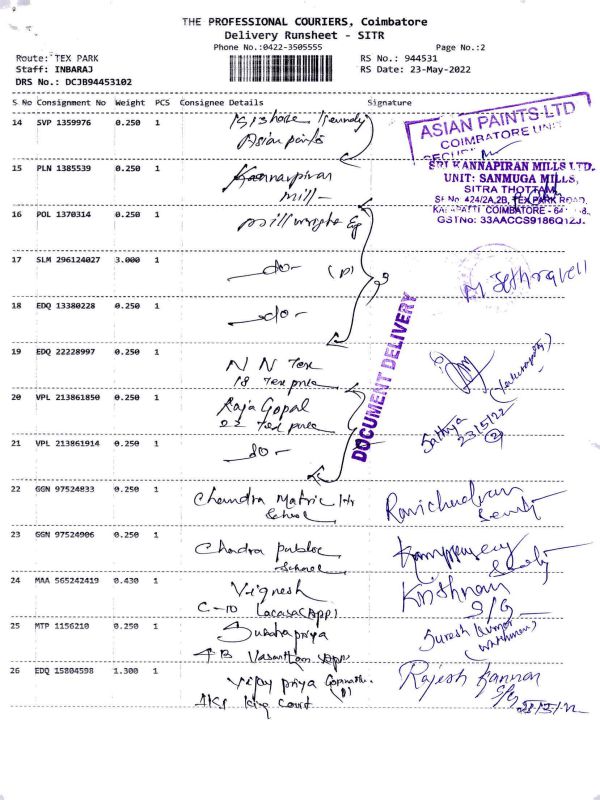 THE PROFESSIONAL COURIERS, Coimbatore
Delivery Runsheet - SITR
Phone No.:0422-3505555
Page No.:2
Route: TEX PARK
RS No.: 944531
Staff: INBARAJ
RS Date: 23-May-2022
DRS No.: DCJB94453102
S No Consignment No Weight PCS Consignee Details Signature
14 SVP 1359976 0.250 1
Asian paints
ASIAN PAINTS-LTD
COIMBATORE UNIT
15 PLN 1385539 0.250 1 Kannapiran
mill
SRI KANNAPIRAN MILLS LTD.
UNIT: SANMUGA MILLS,
SITRA THOTTAM
SF No: 424/2A,2B, TEX PARK ROAD,
COIMBATORE - 64
GSTNo: 33AACCS9186Q1ZJ.
16 POL 1370314 0.250 1
17 SLM 296124027 3.000 1 -do- (P)
18 EDQ 13380228 0.250 1 -do-
DOCUMENT DELIVERY
19 EDQ 22228997 0.250 1 N N Tex
20 VPL 213861850 0.250 1 Raja Gopal
Sathya
23/5/22
21 VPL 213861914 0.250 1 -do-
22 GGN 97524833 0.250 1 Chandra Matric Hr
School
Ravichandran
23 GGN 97524906 0.250 1 Chandra public
School
24 MAA 565242419 0.430 1 Vignesh
C-10 Lacasa (APP)
Krithnan
S/G
25 MTP 1156210 0.250 1
Suresh Kumar
(watchman)
26 EDQ 15804598 1.300 1 Vijay priya
King Court
Rajesh Kannan